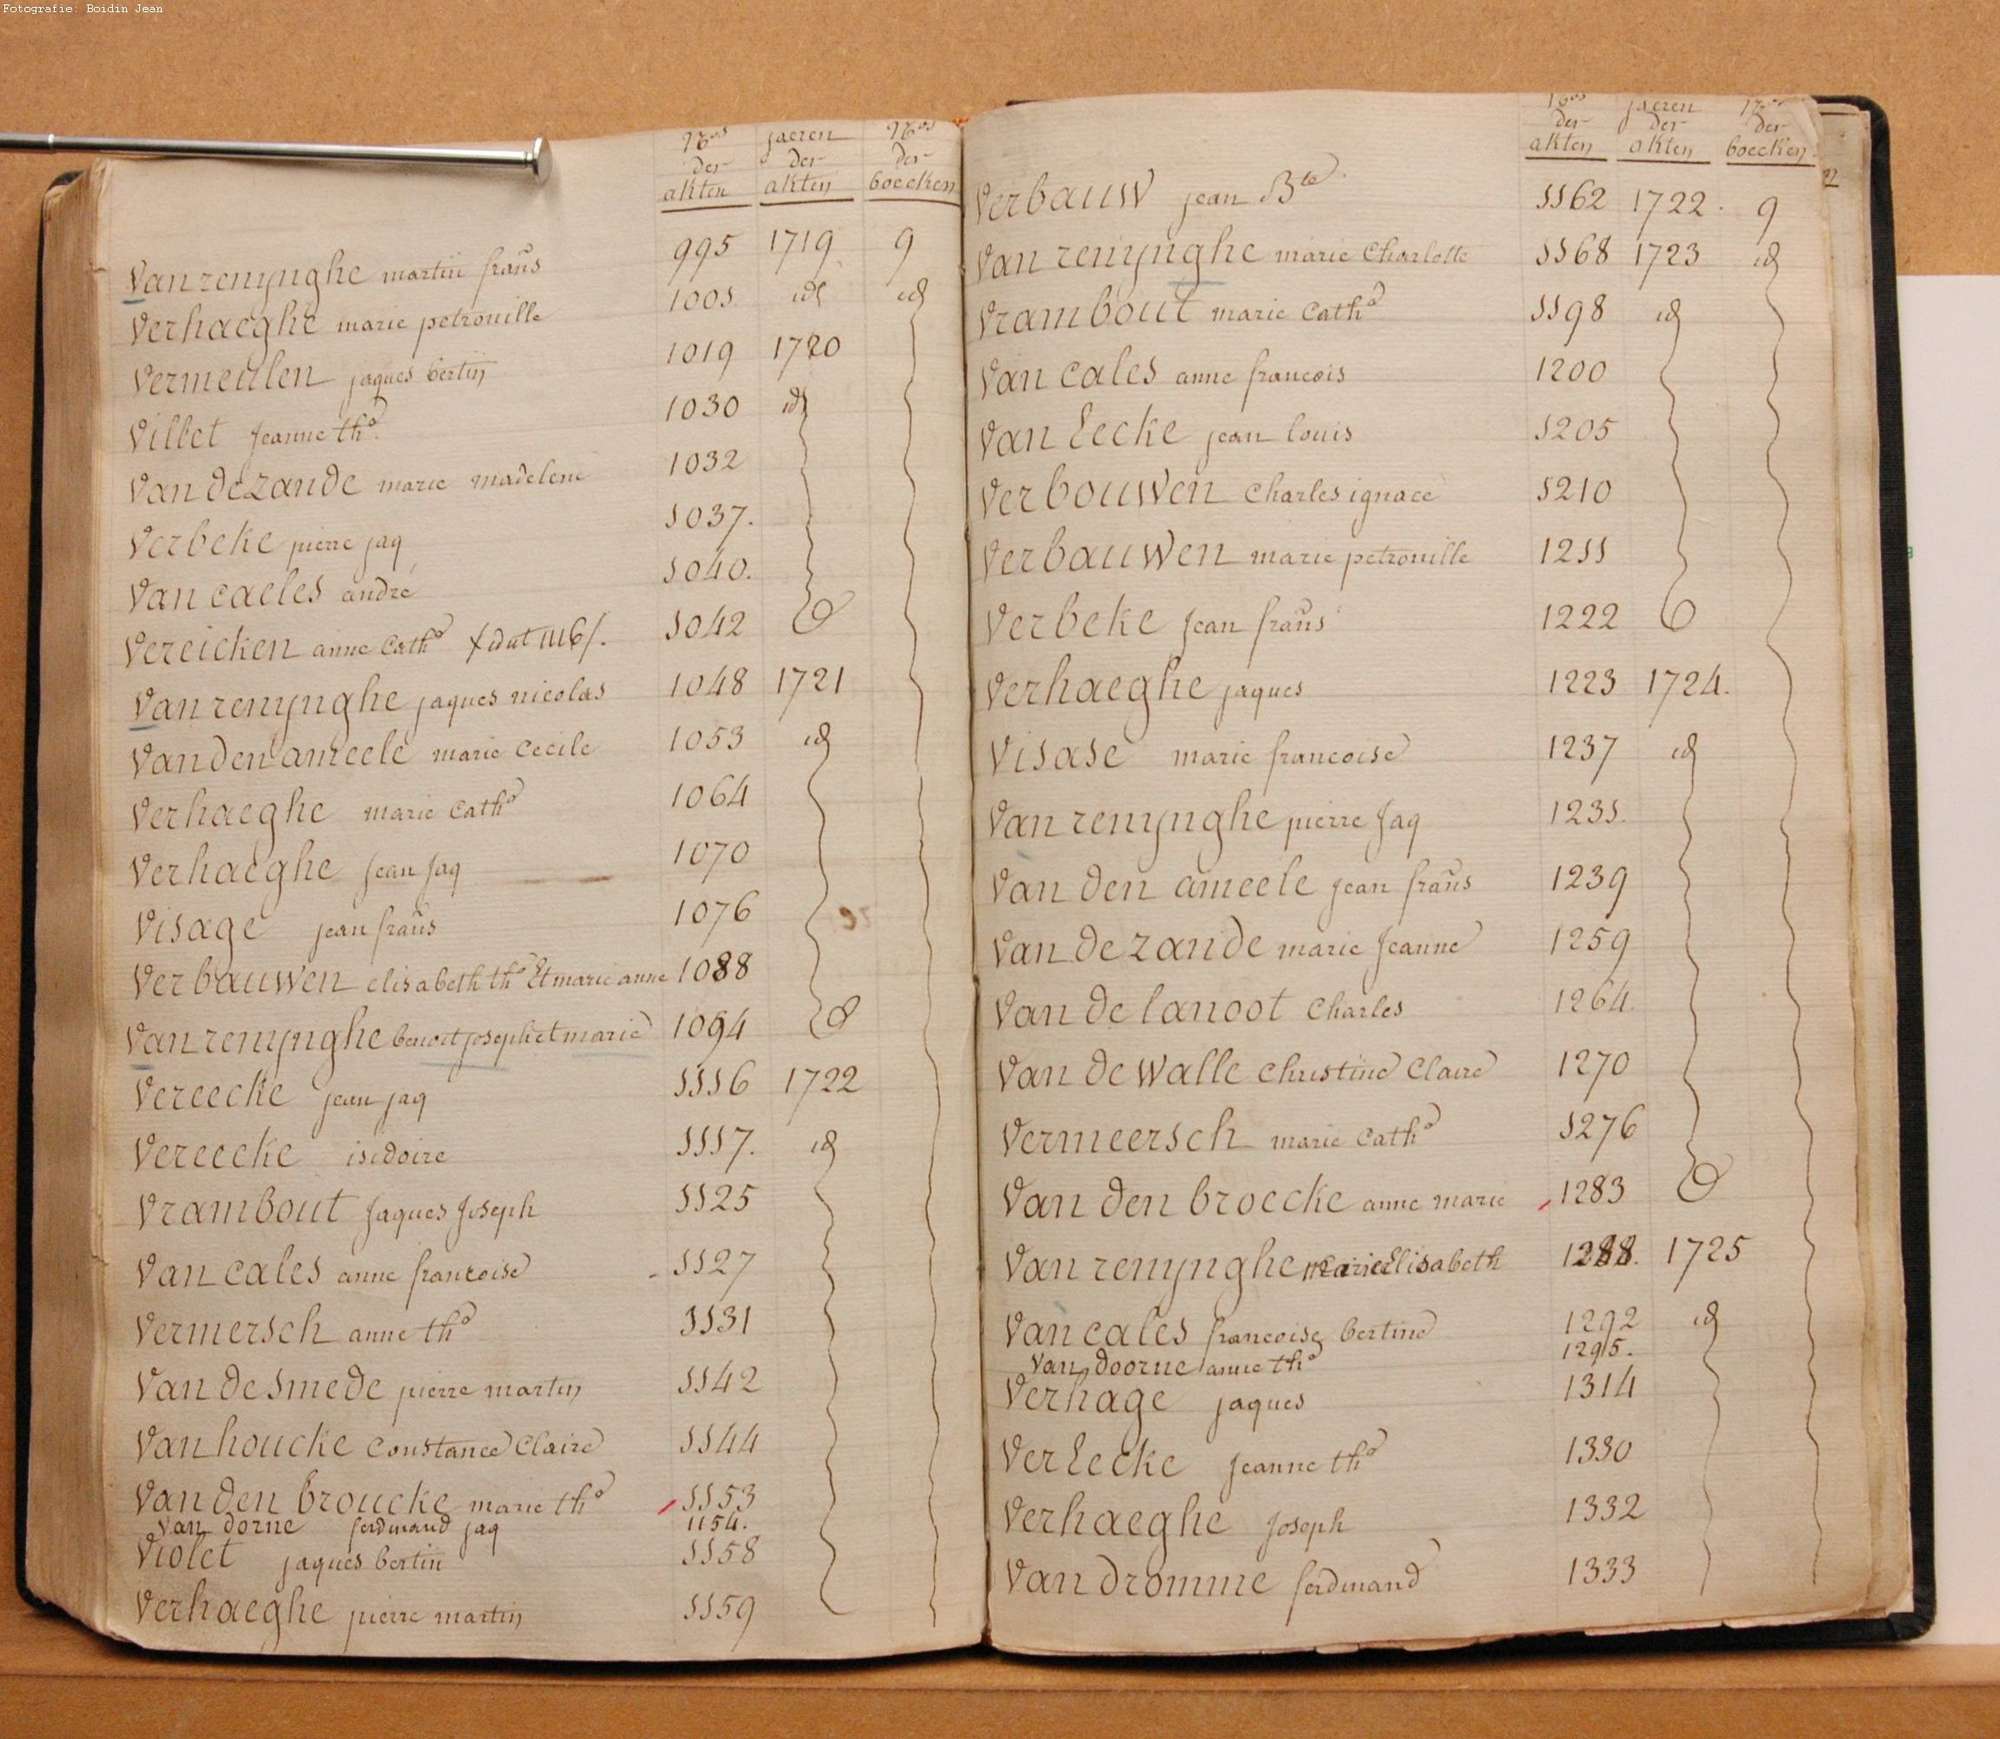 Fotografie: Boidin Jean
Nos jaeren Nos
der der der
akten akten boecken
Van renynghe martin frans 995 1719 9
Verhaeghe marie petronille 1001 id id
Vermeulen jaques bertin 1019 1720
Villet Jeanne the 1030 id
Van de zande marie madelene 1032
Verbeke pierre jaq 1037.
Van caeles andré 1040.
Vereicken anne Cathe 1042
Van renynghe jaques nicolas 1048 1721
Van den ameele marie Cecile 1053 id
Verhaeghe marie Cathe 1064
Verhaeghe Jean Jaq 1070
Visage jean frans 1076
Verbauwen elisabeth the Et marie anne 1088
Van renynghe benoit joseph et marie 1094
Vereecke jean jaq 1116 1722
Vereecke isidoire 1117. id
Vrambout Jaques Joseph 1125
Van cales anne francoise 1127
Vermersch anne the 1131
Van de Smede pierre martin 1142
Van houcke Constance Claire 1144
Van den broucke marie the 1153
Van dorne ferdinand jaq 1154.
Violet jaques bertin 1158
Verhaeghe pierre martin 1159
Nos jaeren Nos
der der der
akten akten boecken.
22
Verbauw jean Bte 1162 1722. 9
Van renynghe marie Charlotte 1168 1723 id
Vrambout marie Cathe 1198 id
Van cales anne francois 1200
Van Eecke jean louis 1205
Verbouwen Charles ignace 1210
Verbauwen marie petronille 1211
Verbeke Jean frans 1222
Verhaeghe jaques 1223 1724.
Visase marie francoise 1237 id
Van renynghe pierre Jaq 1231.
Van den ameele Jean frans 1239
Van de zande marie Jeanne 1259
Van de lanoot Charles 1264.
Van de Walle Christine Claire 1270
Vermeersch marie Cathe 1276
Van den broecke anne marie 1283
Van renynghe marie Elisabeth 1288. 1725
Van cales francoise bertine 1292 id
Van doorne anne the 1295.
Verhage jaques 1314
Ver Eecke Jeanne the 1330
Verhaeghe Joseph 1332
Van dromme ferdinand 1333